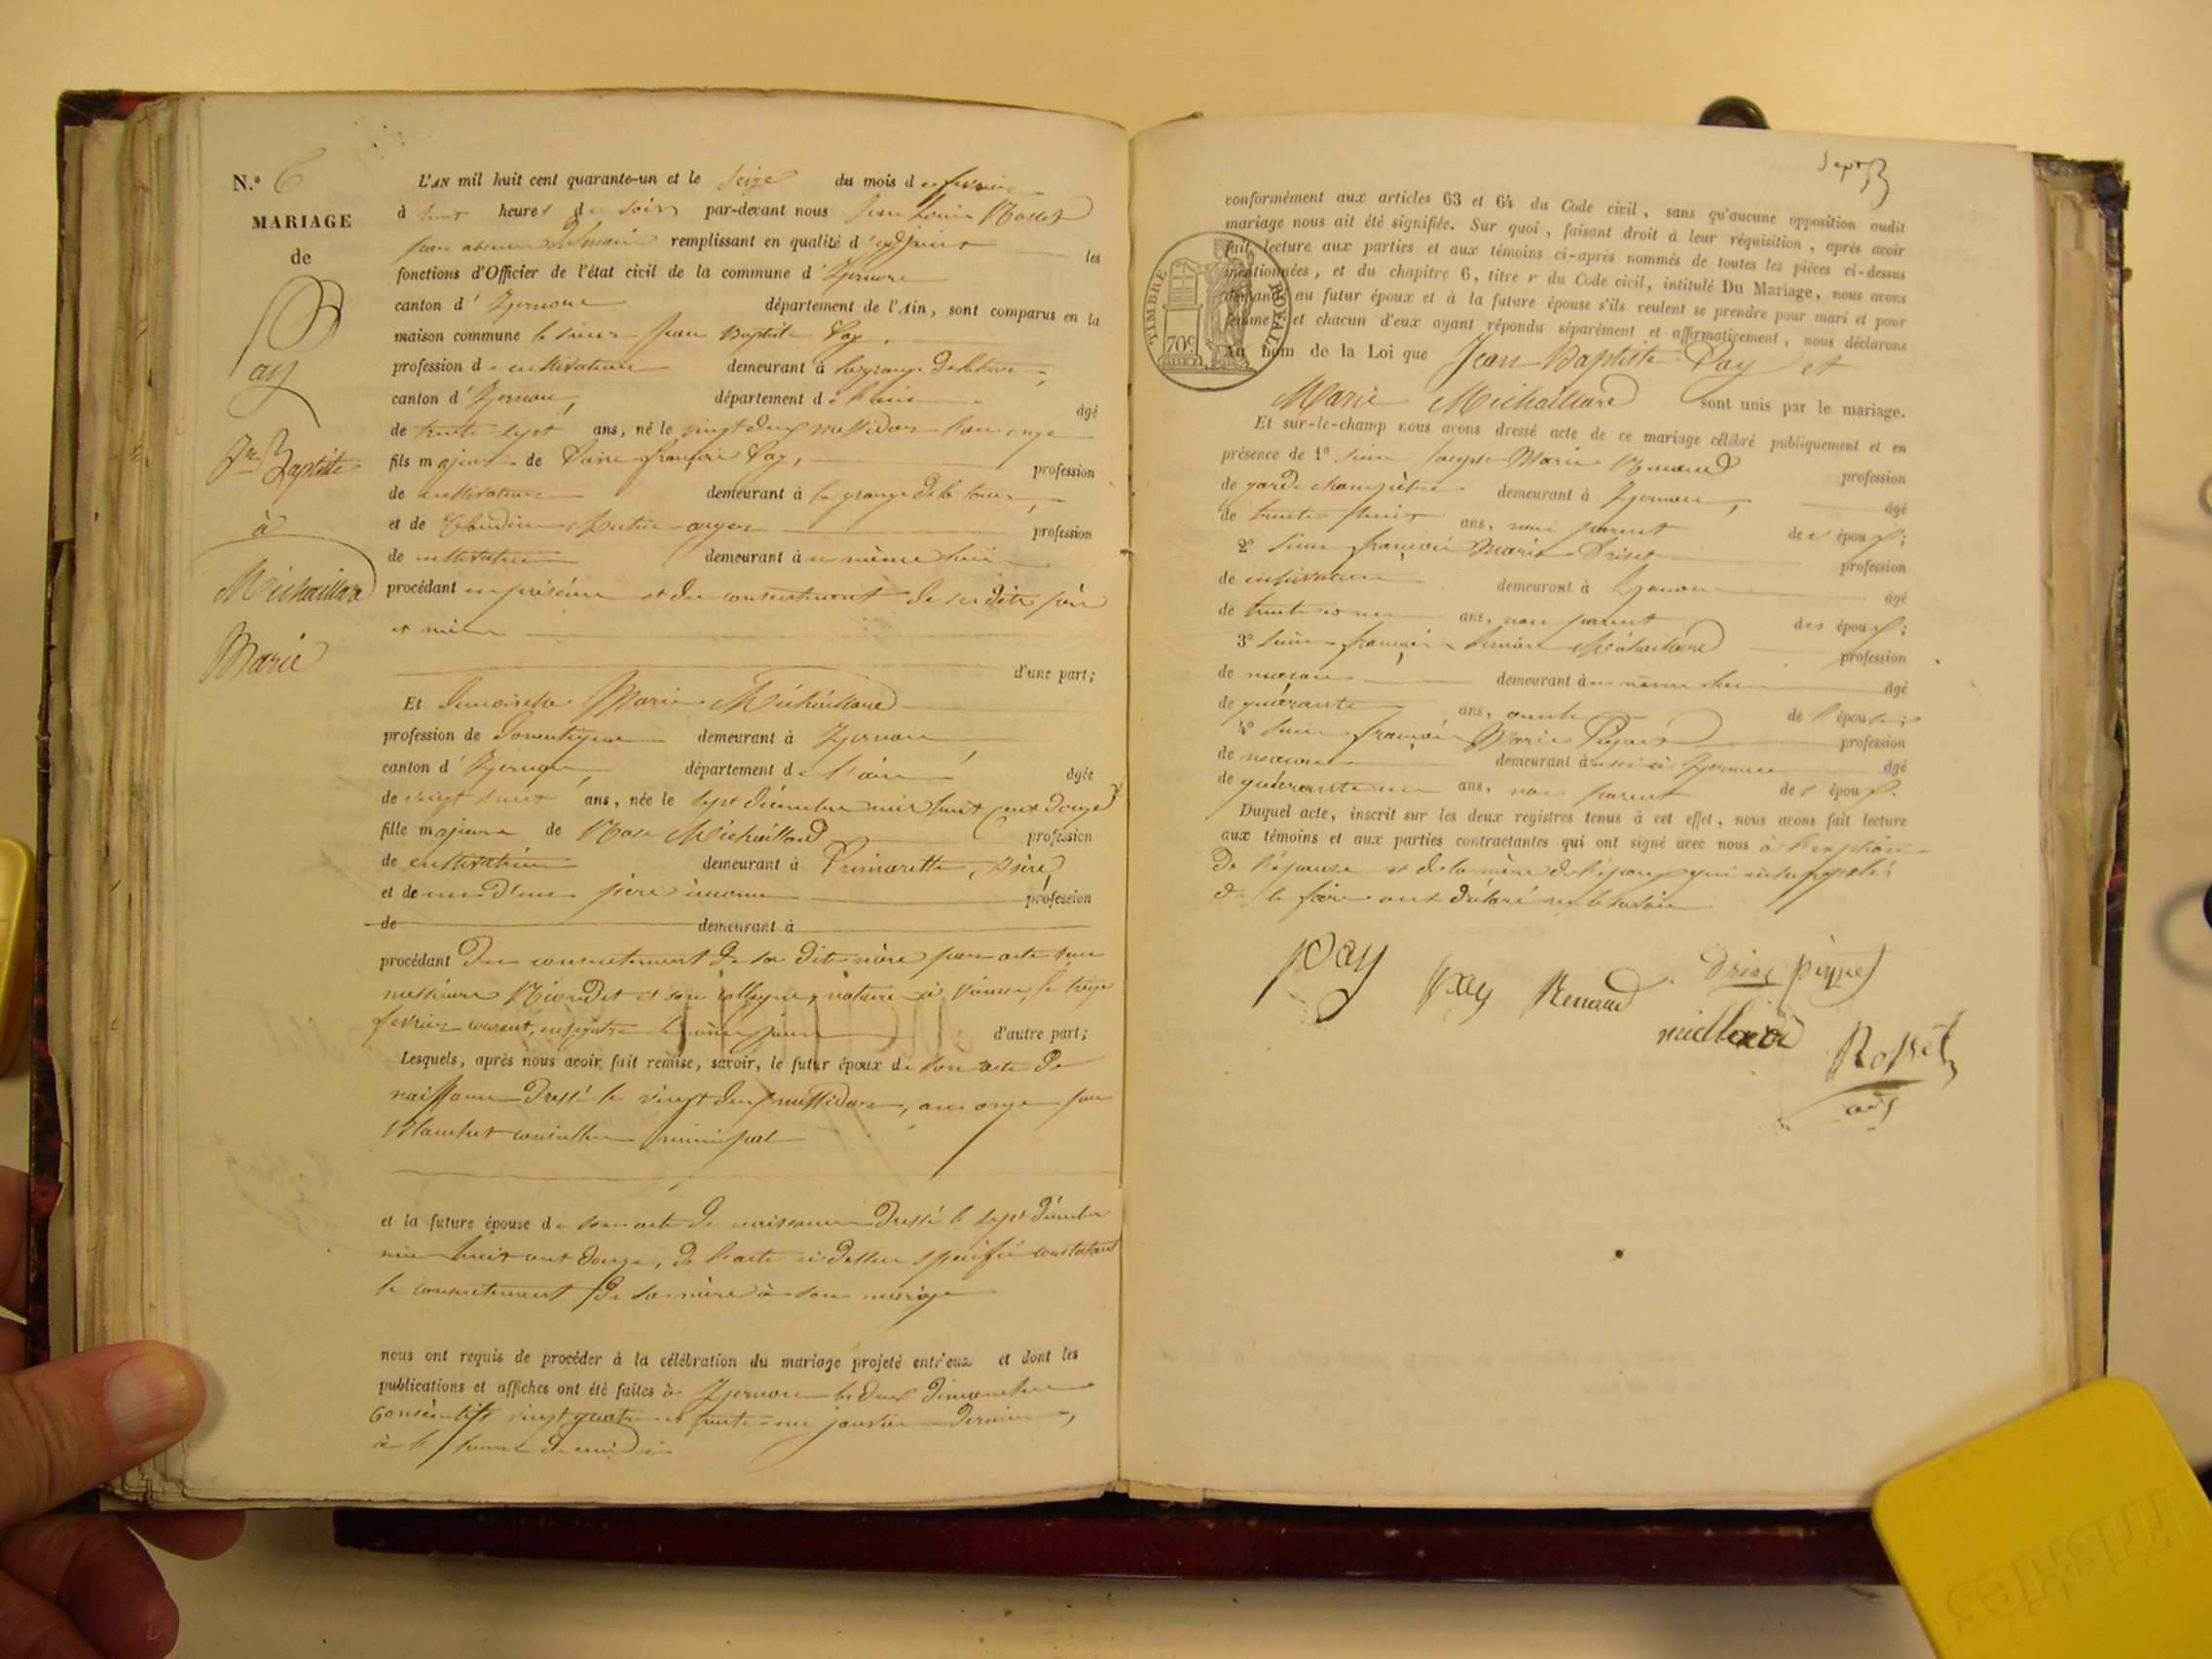 N.° 6
MARIAGE
de
Pay
Jn Baptiste
à
Michaillard
Marie
L'AN mil huit cent quarante-un et le seize du mois de février
à huit heures du soir par-devant nous Jean Rosset
par absence du maire remplissant en qualité d'adjoint les
fonctions d'Officier de l'état civil de la commune d'Izernore
canton d'Izernore département de l'Ain, sont comparus en la
maison commune le sieur Jean Baptiste Pay,
profession de cultivateur demeurant à
canton d'Izernore, département de l'ain âgé
de trente sept ans, né le vingt deux messidor an onze
fils majeur de François Pay, profession
de cultivateur demeurant à la grange de la tour,
et de profession
de cultivatrice demeurant au même lieu
procédant en présence et du consentement de ses dits père
et mère
d'une part;
Et demoiselle Marie Michaillard
profession de domestique demeurant à Izernore
canton d'Izernore, département de l'ain âgée
de vingt huit ans, née le sept décembre mil huit cent douze
fille majeure de Rose Michaillard profession
de cultivatrice demeurant à Primarette, isère,
et de père inconnu profession
de demeurant à
procédant du consentement de sa dite mère par acte
messieurs et son collègue, notaires à Vienne, le
février courant, enregistré le même jour d'autre part;
Lesquels, après nous avoir fait remise, savoir, le futur époux de son acte de
naissance dressé le vingt deux messidor, an onze par
Blanchet conseiller municipal
et la future épouse de son acte de naissance dressé le sept décembre
mil huit cent douze, de l'acte ci dessus spécifié constatant
le consentement de sa mère à son mariage
nous ont requis de procéder à la célébration du mariage projeté entr'eux et dont les
publications et affiches ont été faites à Izernore les deux dimanches
consécutifs vingt quatre et trente un janvier dernier,
à l'heure de midi
Sept
conformément aux articles 63 et 64 du Code civil, sans qu'aucune opposition audit
mariage nous ait été signifiée. Sur quoi, faisant droit à leur réquisition, après avoir
fait lecture aux parties et aux témoins ci-après nommés de toutes les pièces ci-dessus
mentionnées, et du chapitre 6, titre v du Code civil, intitulé Du Mariage, nous avons
demandé au futur époux et à la future épouse s'ils veulent se prendre pour mari et pour
femme, et chacun d'eux ayant répondu séparément et affirmativement, nous déclarons
Au nom de la Loi que Jean Baptiste Pay et
Marie Michaillard sont unis par le mariage.
TIMBRE ROYAL
70c
Et sur-le-champ nous avons dressé acte de ce mariage célébré publiquement et en
présence de 1° sieur Joseph Marie Renaud profession
de garde champêtre demeurant à Izernore, âgé
de trente huit ans, non parent des époux;
2° sieur françois Marie profession
de cultivateur demeurant à Izernore âgé
de trente ans, non parent des époux;
3° sieur françois Michaillard profession
de maçon demeurant au même lieu âgé
de quarante ans, oncle de l'épouse;
4° sieur françois Marie profession
de maçon demeurant aussi à Izernore âgé
de quarante un ans, non parent des époux.
Duquel acte, inscrit sur les deux registres tenus à cet effet, nous avons fait lecture
aux témoins et aux parties contractantes qui ont signé avec nous à l'exception
de l'épouse et de la mère de l'époux qui interpellés
de le faire ont déclaré ne le savoir
Pay Pay Renaud
Rosset
adj